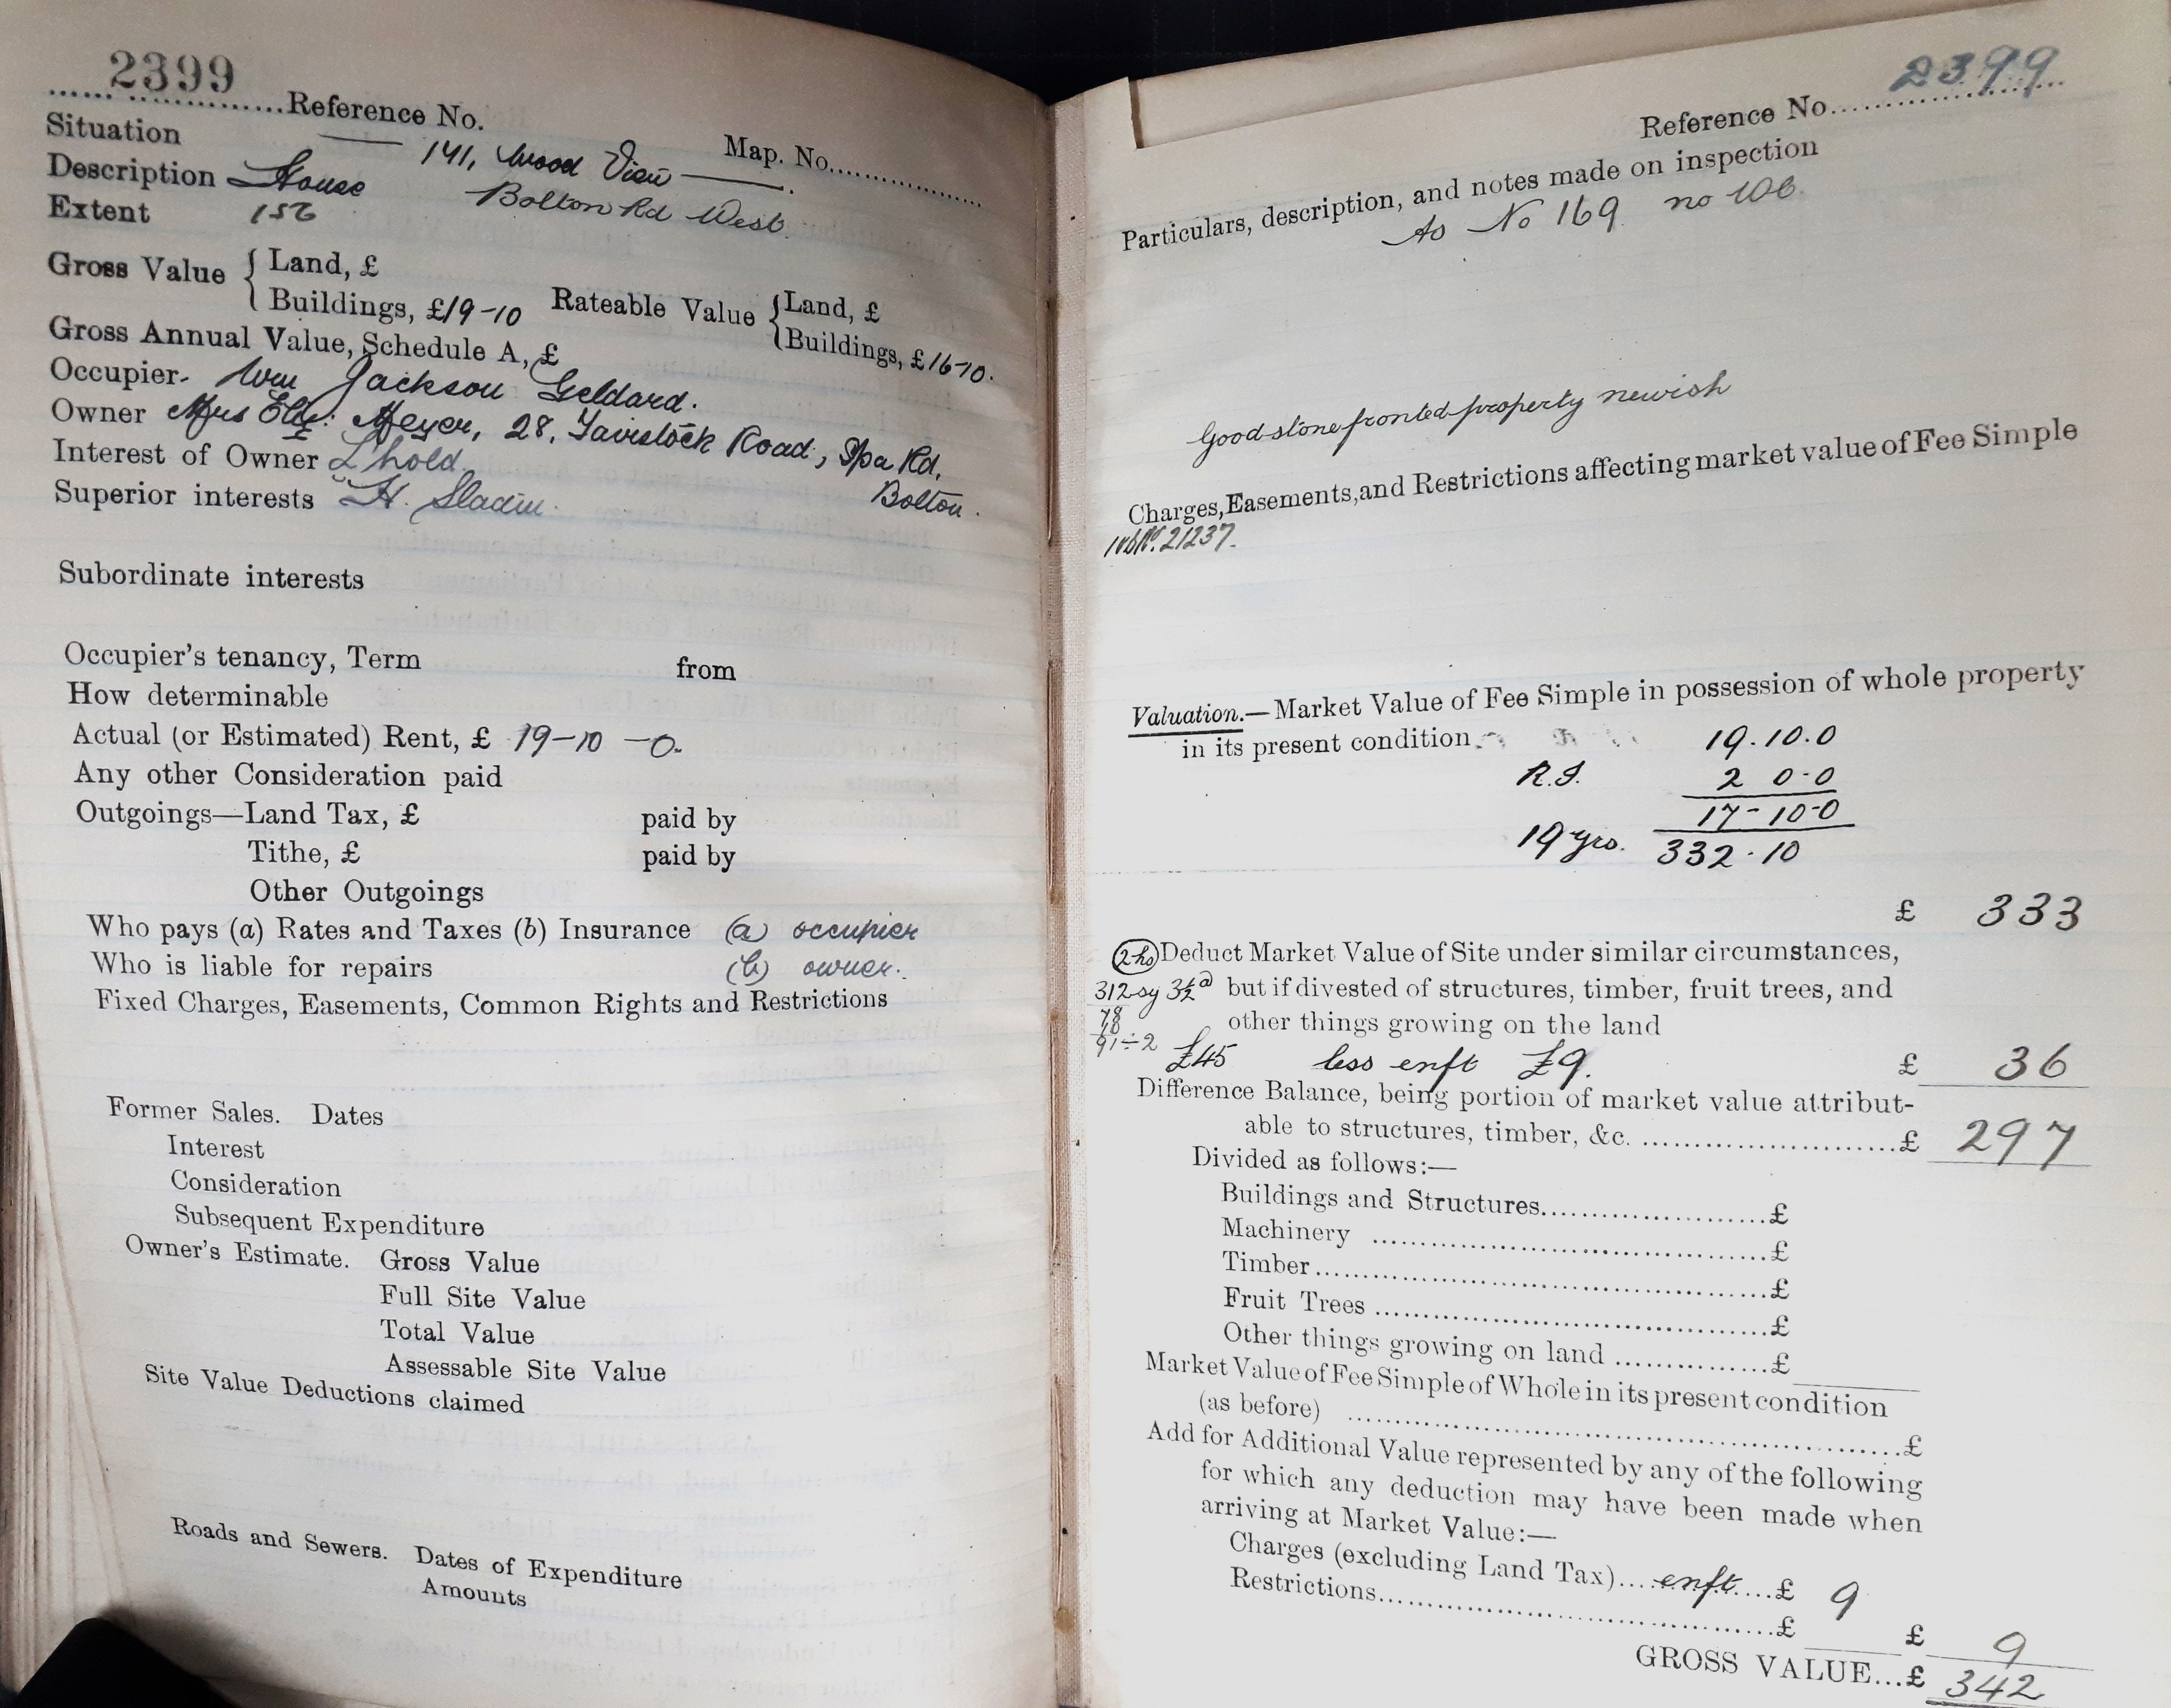 2399
Reference No.
Map. No.
Situation 141, Wood View
Description House Bolton Rd West.
Extent 156
Gross Value { Land, £
Buildings, £19-10 Rateable Value { Land, £
Buildings, £16-10.
Gross Annual Value, Schedule A, £
Occupier. Wm Jackson Geldard.
Owner Mrs Meyer, 28, Tavistock Road, Spa Rd,
Bolton.
Interest of Owner L'hold
Superior interests H. Sladin.
Subordinate interests
Occupier's tenancy, Term from
How determinable
Actual (or Estimated) Rent, £ 19-10-0.
Any other Consideration paid
Outgoings—Land Tax, £ paid by
Tithe, £ paid by
Other Outgoings
Who pays (a) Rates and Taxes (b) Insurance (a) occupier
Who is liable for repairs (b) owner.
Fixed Charges, Easements, Common Rights and Restrictions
Former Sales. Dates
Interest
Consideration
Subsequent Expenditure
Owner's Estimate. Gross Value
Full Site Value
Total Value
Assessable Site Value
Site Value Deductions claimed
Roads and Sewers. Dates of Expenditure
Amounts
Reference No. 2399
Particulars, description, and notes made on inspection
As No 169 no
Good stone fronted property newish
Charges, Easements, and Restrictions affecting market value of Fee Simple
21237.
Valuation.—Market Value of Fee Simple in possession of whole property
in its present condition 19.10.0
2 0-0
17-10-0
19 yrs. 332.10
£ 333
(2 ho) Deduct Market Value of Site under similar circumstances,
312 sy 3½d but if divested of structures, timber, fruit trees, and
78
other things growing on the land
91÷2 £45 less enft £9. £ 36
Difference Balance, being portion of market value attribut-
able to structures, timber, &c. £ 297
Divided as follows:—
Buildings and Structures £
Machinery £
Timber £
Fruit Trees £
Other things growing on land £
Market Value of Fee Simple of Whole in its present condition
(as before) £
Add for Additional Value represented by any of the following
for which any deduction may have been made when
arriving at Market Value:—
Charges (excluding Land Tax) enft £ 9
Restrictions £
£ 9
GROSS VALUE...£ 342